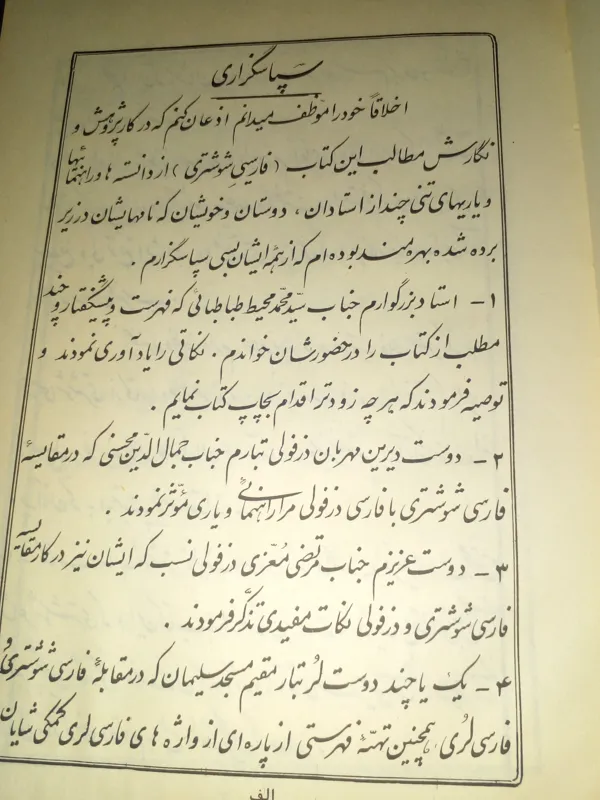 سپاسگزاری
اخلاقاً خود را موظف میدانم اذعان کنم که در کار پژوهش و
نگارش مطالب این کتاب (فارسیِ شوشتری) از دانسته ها و راهنمائیها
و یاریهای تنی چند از استادان، دوستان و خویشان که نامهایشان در زیر
برده شده بهره مند بوده ام که از همهٔ ایشان بسی سپاسگزارم .
۱- استاد بزرگوارم جناب سیّد محمّد محیط طباطبائی که فهرست و پیشگفتار و چند
مطلب از کتاب را در حضورشان خواندم . نکاتی را یادآوری نمودند و
توصیه فرمودند که هر چه زودتر اقدام بچاپ کتاب نمایم .
۲- دوست دیرین مهربان دزفولی تبارم جناب جمال الدّین محسنی که در مقایسهٔ
فارسی شوشتری با فارسی دزفولی مرا راهنمائی و یاری مؤثر نمودند .
۳- دوست عزیزم جناب مرتضی مُعزّی دزفولی نسب که ایشان نیز در کار مقایسه
فارسی شوشتری و دزفولی نکات مفیدی تذکّر فرمودند .
۴- یک یا چند دوست لُر تبار مقیم مسجد سلیمان که در مقابلهٔ فارسی شوشتری و
فارسی لُری، همچنین تهیّهٔ فهرستی از پاره ای از واژه های فارسی لری کمکی شایان
الف